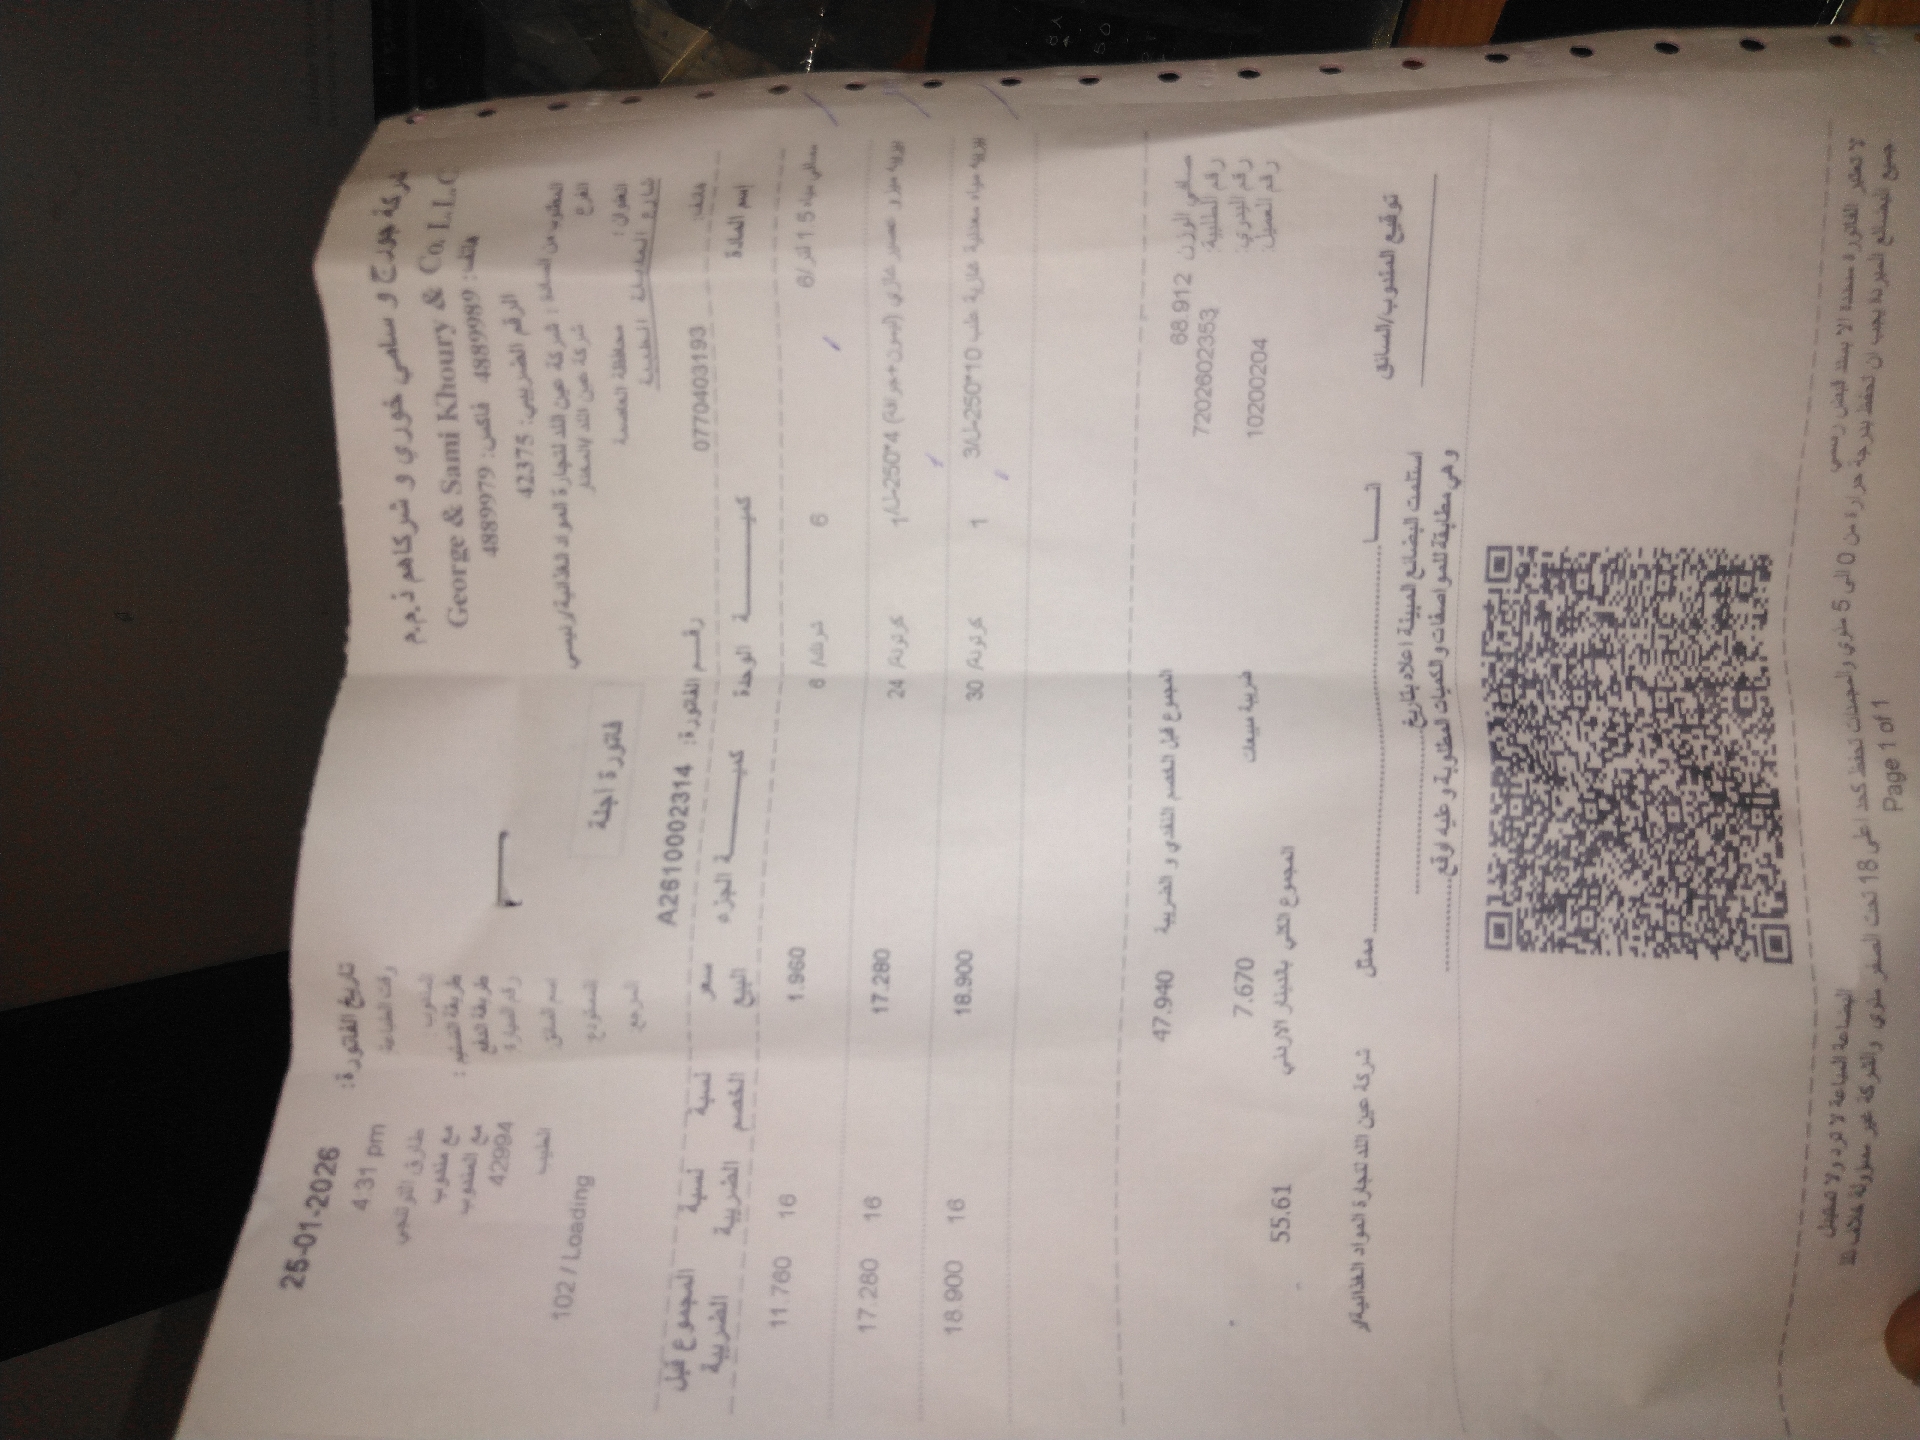 شركة جورج و سامي خوري و شركاهم ذ.م.م
George & Sami Khoury & Co. L.L.C
هاتف: 4889989 فاكس: 4889979
الرقم الضريبي: 42375
المطلوب من السادة : شركة عين اللد لتجارة المواد الغذائية/رئيسي
الفرع شركة عين اللد
العنوان : محافظة العاصمة
شارع
هاتف: 0770403193
تاريخ الفاتورة: 25-01-2026
وقت الطباعة 4:31 pm
المندوب طارق
طريقة التسليم : مع مندوب
طريقة الدفع مع المندوب
رقم السيارة 42994
اسم السائق
المستودع 102 / Loading
المرجع
فاتورة اجلة
رقم الفاتورة: A2610002314
إسم المادة كميــة الوحدة كميــة الجزء سعر البيع نسبة الخصم نسبة الضريبة المجموع قبل الضريبة
مياه 1.5 لتر/6 6 شرنك/ 6 1.960 16 11.760
عصير غازي (ليمون+ 250*4 1 كرتونة/ 24 17.280 16 17.280
مياه معدنية غازية علب 10*250-مل/3 1 كرتونة/ 30 18.900 16 18.900
صافي الوزن 68.912
رقم الطلبية 7202602353
رقم اليدوي:
رقم العميل: 10200204
المجموع قبل الخصم النقدي و الضريبة 47.940
ضريبة مبيعات 7.670
المجموع الكلي بالدينار الاردني 55.61
توقيع المندوب/السائق
انــا ممثل شركة عين اللد لتجارة المواد الغذائية/ر
استلمت البضائع المبينة اعلاه بتاريخ
وهي مطابقة للمواصفات و الكميات المطلوبة و عليه اوقع
لا تعتبر الفاتورة مسددة الا بسند قبض رسمي
البضاعة المباعة لا ترد ولا تستبدل
جميع البضائع المبردة يجب ان تحفظ بدرجة حرارة من 0 الى 5 مئوي والمجمدات تحفظ كحد اعلى 18 تحت الصفر مئوي والشركة غير مسؤولة خلاف ذلك
Page 1 of 1